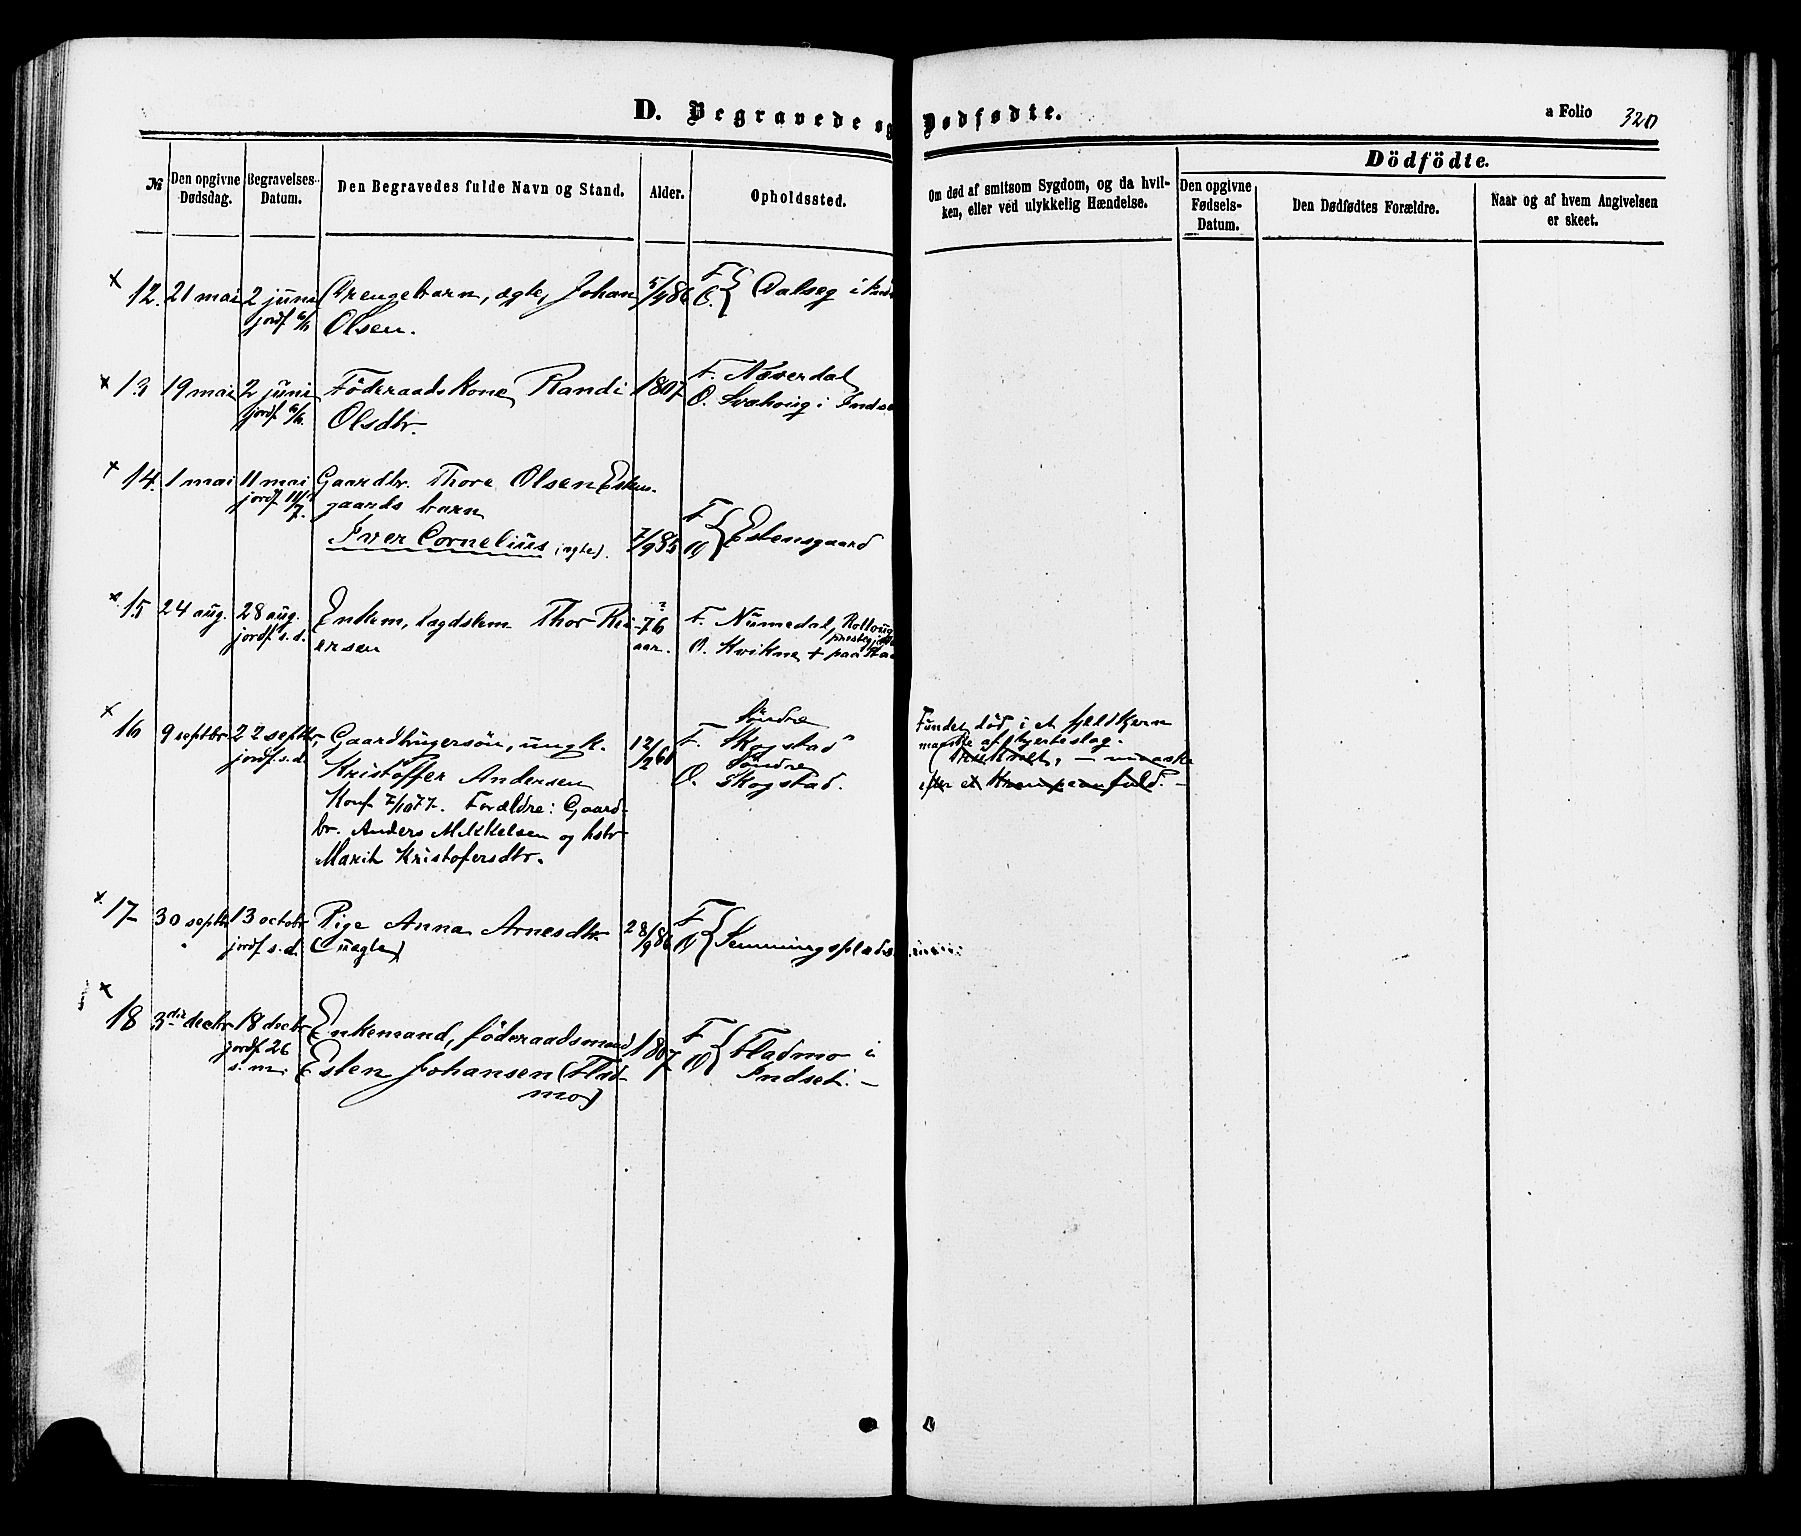 D. Begravede og Dødfødte.
a Folio 320
№
Den opgivne Dødsdag.
Begravelses-Datum.
Den Begravedes fulde Navn og Stand.
Alder.
Opholdssted.
Om død af smitsom Sygdom, og da hvil-
ken, eller ved ulykkelig Hændelse.
Dödfödte.
Den opgivne Fødsels-Datum.
Den Dødfødtes Forældre.
Naar og af hvem Angivelsen er skeet.
x 12. 21 mai 2 juni Drengebarn, ægte, Johan 5/4 86 F. O. { Dalseg i
jordf 6/6 Olsen.
x 13 19 mai 2 juni Föderaadskone Randi 1807 F. Næverdal
jordf 6/6. Olsdtr. O. i Inds
+ 14. 1 mai 11 mai Gaardbr. Thore Olsen Esten-
jordf 11/7. gaards barn
Iver Cornelius (ægte). 7/9 85 F O { Estensgaard
x 15 24 aug. 28 aug. Enkem, Thor Rei- ? 76 F. Numedal, Rolloug
jordf. s. d. ersen aar. præstegj
O. Kvikne + paa
x 16 9 septbr 22 septbr, Gaardbrugersøn, ungk. 12/2 60 F. Söndre Skogstad
jordf. s. d. Kristoffer Andersen O. Söndre Skogstad.
Konf 7/10 77. Forældre: Gaard-
br. Anders Mikkelsen og hstr
Marit Kristofersdtr.
Fundet död i et fjeldtjern
maaske af hjerteslag.
(druknet, – maaske
efter et Krampeanfald. –
x 17 30 septbr 13 octobr Pige Anna Arnesdtr 28/9 86 F O { Semmingsplads
jordf s. d. (uægte)
x 18 3die decbr 18 decbr Enkemand, föderaadsmand 1807 F O { Fladmo i
jordf 26 Esten Johansen (Flad- Indset. –
s. m. mo)